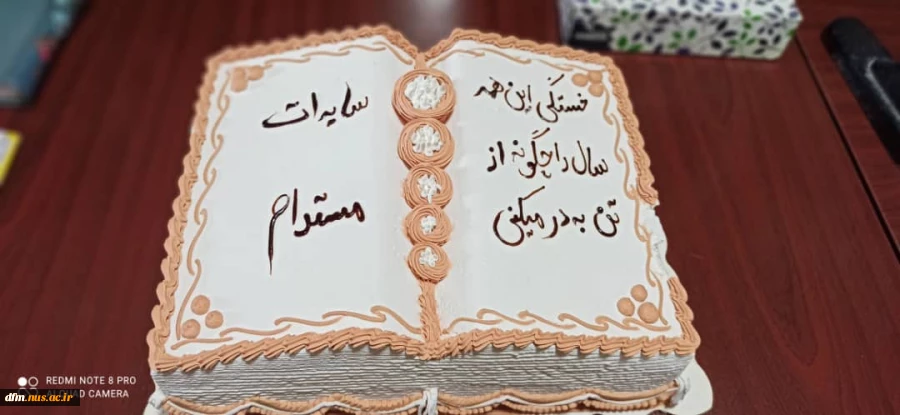 خستگی این همه
سال را چگونه از
تن به در میکنی
سایه‌ات
مستدام
REDMI NOTE 8 PRO
AI QUAD CAMERA
dfm.nus.ac.ir